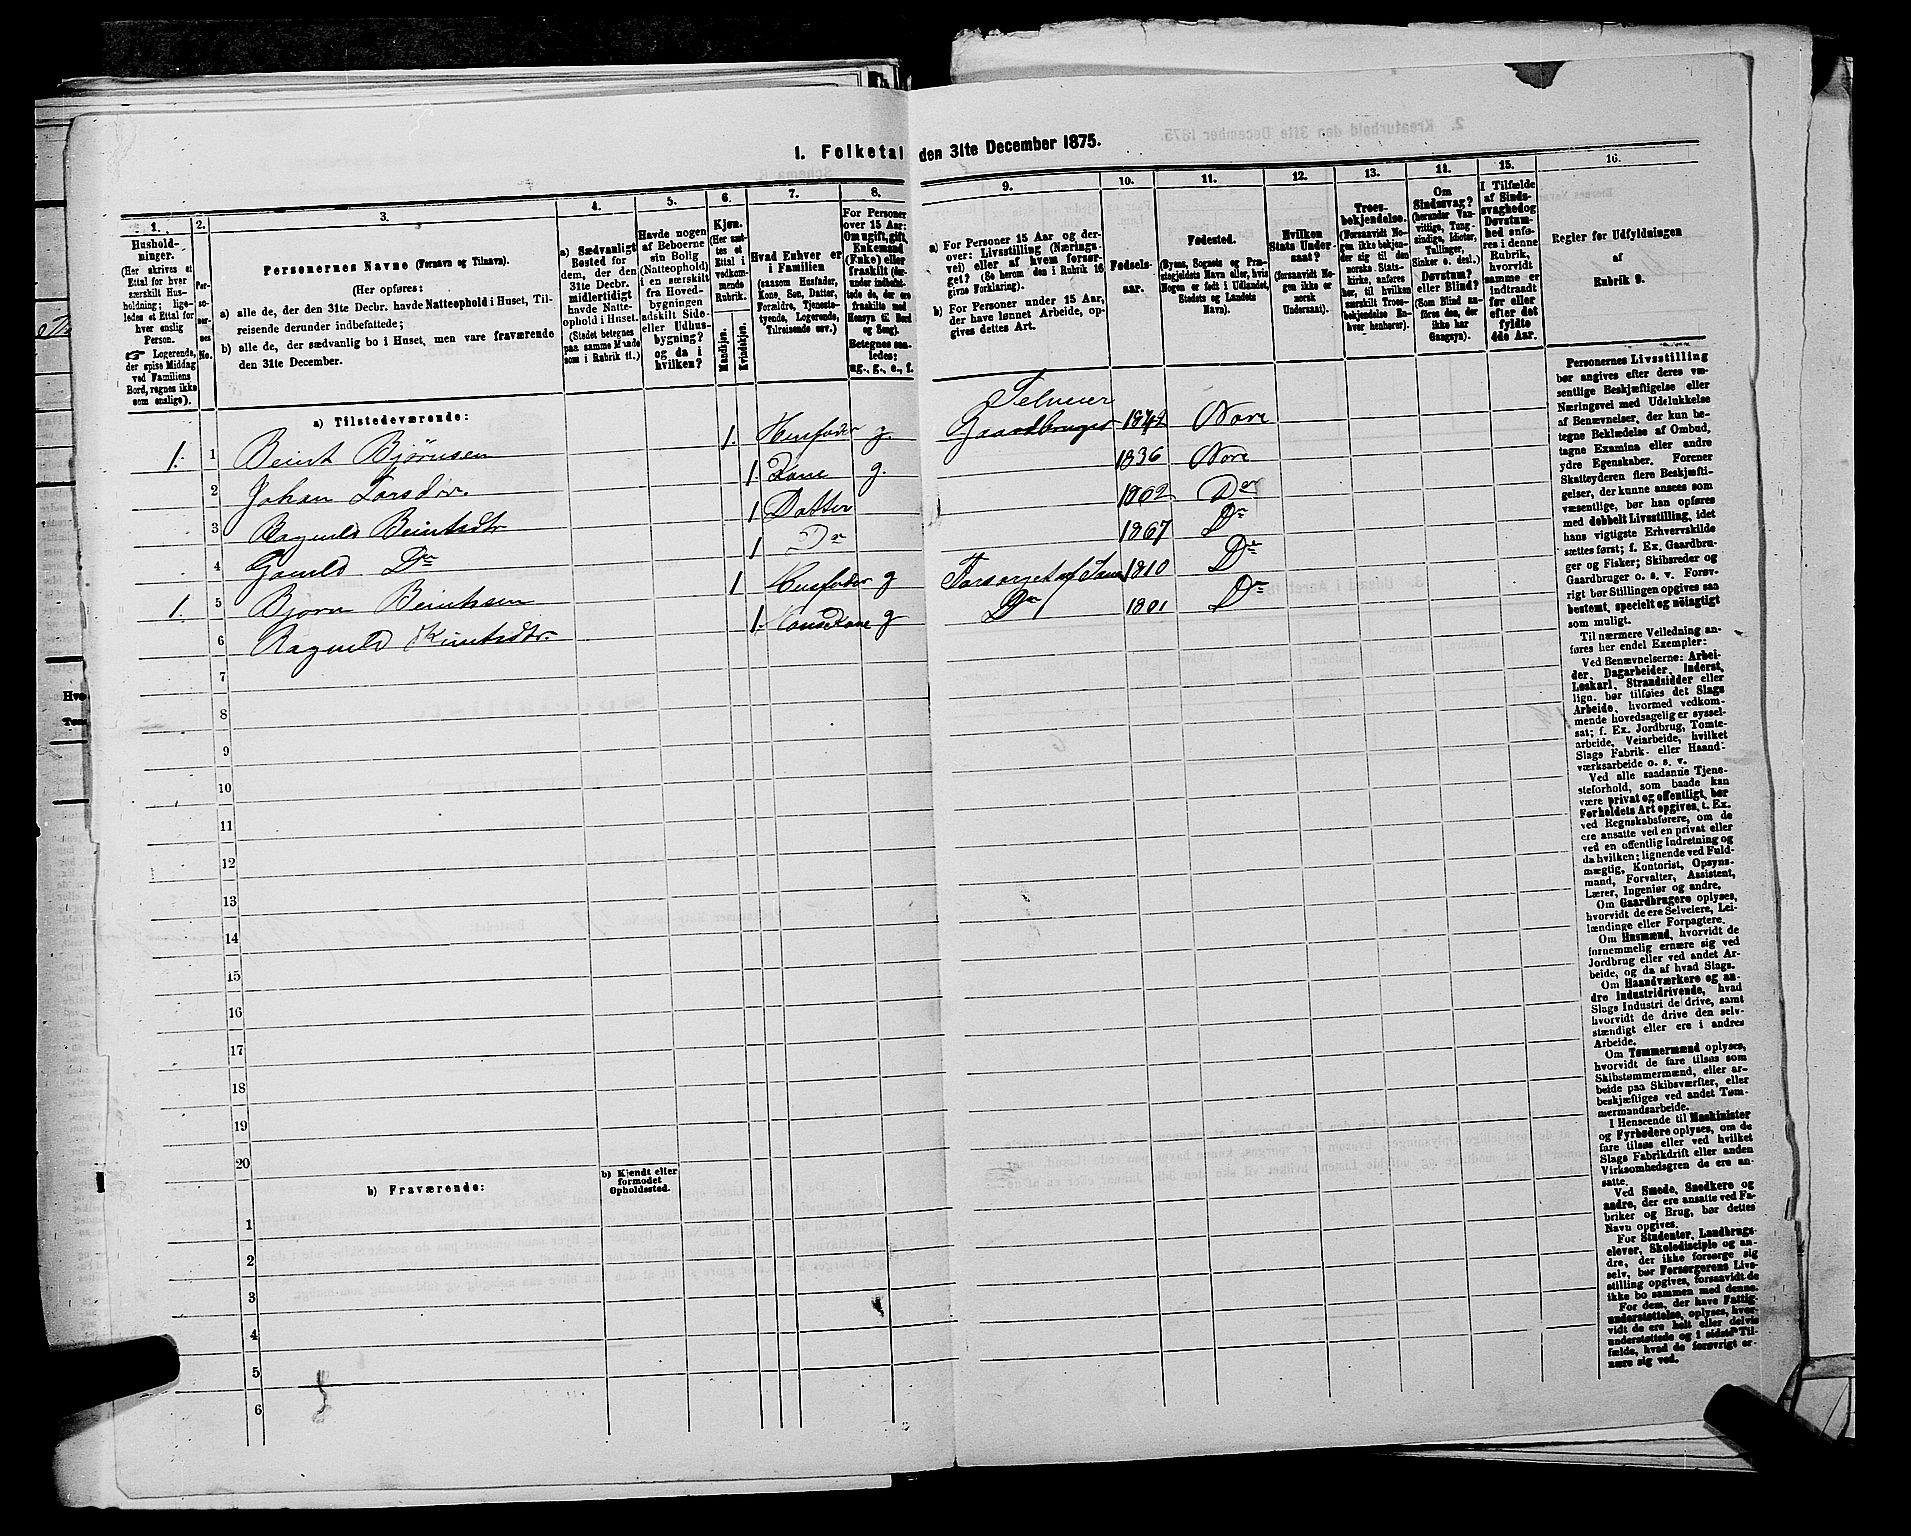 1. Folketal den 31te December 1875.
1.
Husholdninger.
(Her skrives et Ettal for hver særskilt Husholdning; ligeledes et Ettal for hver enslig Person.
☞ Logerende, der spise Middag ved Familiens Bord, regnes ikke som enslige).
2.
Personernes No.
3.
Personernes Navne (Fornavn og Tilnavn).
(Her opføres:
a) alle de, der den 31te Decbr. havde Natteophold i Huset, Tilreisende derunder indbefattede;
b) alle de, der sædvanlig bo i Huset, men vare fraværende den 31te December.
4.
a) Sædvanligt Bosted for dem, der den 31te Decbr. midlertidigt havde Natteophold i Huset.
(Stedet betegnes paa samme Maade som i Rubrik 11.)
5.
Havde nogen af Beboerne sin Bolig (Natteophold) i en særskilt fra Hovedbygningen adskilt Side- eller Udhusbygning? og da i hvilken?
6.
Kjøn.
(Her sættes et Ettal i vedkommende Rubrik.
Mandkjøn.
Kvindekjøn.
7.
Hvad Enhver er i Familien
(saasom Husfader, Kone, Søn, Datter, Forældre, Tjenestetyende, Logerende, Tilreisende osv.)
8.
For Personer over 15 Aar: Om ugift, gift, Enkemand (Enke) eller fraskilt
Betegnes saaledes: ug., g., e., f.
9.
a) For Personer 15 Aar og derover: Livsstilling (Næringsvei) eller af hvem forsørget? (Se herom den i Rubrik 16 givne Forklaring).
b) For Personer under 15 Aar, der have lønnet Arbeide, opgives dettes Art.
10.
Fødselsaar.
11.
Fødested.
(Byens, Sognets og Præstegjeldets Navn eller, hvis Nogen er født i Udlandet, Stedets og Landets Navn).
12.
Hvilken Stats Undersaat?
(forsaavidt Nogen ikke er norsk Undersaat).
13.
Troesbekjendelse.
(Forsaavidt Nogen ikke bekjender sig til den norske Statskirke, anføres her, til hvilken særskilt Troesbekjendelse Enhver henhører).
14.
Om Sindssvag? (herunder Vanvittige, Tungsindige, Idioter, Tullinger, Sinker o. desl.)
Døvstum? eller Blind?
(Som Blind anføres den, der ikke har Gangsyn).
15.
I Tilfælde af Sindssvaghed og Døvstumhed anføres i denne Rubrik, hvorvidt samme er indtraadt før eller efter det fyldte 4de Aar.
16.
Regler for Udfyldningen
af
Rubrik 9.
a) Tilstedeværende:
1. 1 Beint Bjørnsen 1. Husfader g. Selveier Gaardbruger 1842 Nore
2 Johan Larsdtr. 1. Kone g. 1836 Nore
3 Ragnild Beintsdtr 1 Datter 1862 Do
4 Gonild Do 1 Do 1867 Do
1. 5 Bjørn Beintsen 1 Husfader g Forsørget af Sønn 1810 Do
6 Ragnild Knutsdtr. 1. Hans Kone g Do 1801 Do
7
8
9
10
11
12
13
14
15
16
17
18
19
20
b) Fraværende:
b) Kjendt eller formodet Opholdssted.
1
2
3
4
5
6
Personernes Livsstilling
bør angives efter deres væ-
sentlige Beskjæftigelse eller
Næringsvei med Udelukkelse
af Benævnelser, der kun be-
tegne Beklædelse af Ombud,
tagne Examina eller andre
ydre Egenskaber. Forener
Skatteyderen flere Beskjæfti-
gelser, der kunne ansees som
væsentlige, bør han opføres
med dobbelt Livsstilling, idet
hans vigtigste Erhvervskilde
sættes først; f. Ex. Gaardbru-
ger og Fisker; Skibsreder og
Gaardbruger o. s. v. Forøv-
rigt bør Stillingen opgives saa
bestemt, specielt og nøiagtigt
som muligt.
Til nærmere Veiledning an-
føres her endel Exempler:
Ved Benævnelserne: Arbei-
der, Dagarbeider, Inderst,
Løskarl, Strandsidder eller
lign. bør tilføies det Slags
Arbeide, hvormed vedkom-
mende hovedsagelig er syssel-
sat; f. Ex. Jordbrug, Tomte-
arbeide, Veiarbeide, hvilket
Slags Fabrik- eller Haand-
værksarbeide o. s. v.
Ved alle saadanne Tjene-
steforhold, som baade kan
være privat og offentligt, bør
Forholdets Art opgives, t. Ex.
ved Regnskabsførere, om de
ere ansatte ved en privat eller
ved en offentlig Indretning og
da hvilken; lignende ved Fuld-
mægtig, Kontorist, Opsyns-
mand, Forvalter, Assistent,
Lærer, Ingeniør og andre.
Om Gaardbrugere oplyses,
hvorvidt de ere Selveiere, Lei-
lændinge eller Forpagtere.
Om Husmænd, hvorvidt de
fornemmelig ernære sig ved
Jordbrug eller ved andet Ar-
beide, og da af hvad Slags.
Om Haandværkere og an-
dre Industridrivende, hvad
Slags Industri de drive, samt
hvorvidt de drive den selv-
stændigt eller ere i andres
Arbeide.
Om Tømmermænd oplyses,
hvorvidt de fare tilsøs som
Skibstømmermænd, eller ar-
beide paa Skibsværfter, eller
beskjæftiges ved andet Tøm-
mermandsarbeide.
I Henseende til Maskinister
og Fyrbødere oplyses, om de
fare tilsøs eller ved hvilket
Slags Fabrikdrift eller anden
Virksomhedsgren de ere an-
satte.
Ved Smede, Snedkere og
andre, der ere ansatte ved Fa-
briker og Brug, bør dettes
Navn opgives.
For Studenter, Landbrugs-
elever, Skoledisciple og an-
dre, der ikke forsørge sig
selv, bør Forsørgerens Livs-
stilling opgives, forsaavidt de
ikke bo sammen med denne.
For dem, der have Fattig-
understøttelse, oplyses, hvor-
vidt de ere helt eller delvis
understøttede og i sidste Til-
fælde, hvad de forøvrigt er-
nære sig ved.